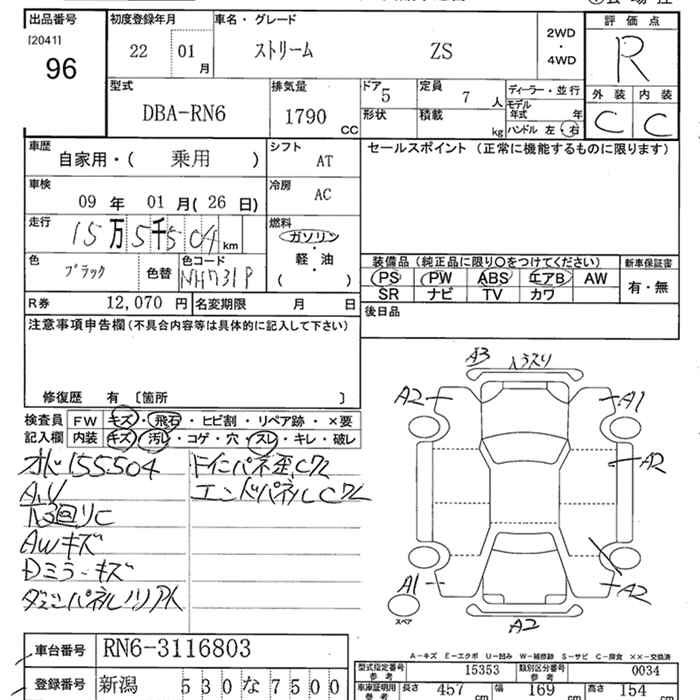 出品番号 初度登録年月 車名・グレード 評価点
[2041] 22 01 月 ストリーム ZS 2WD・4WD R
96
型式 排気量 ドア 5 定員 7 人 ディーラー・並行 外装 内装
DBA-RN6 1790 CC 形状 積載 kg モデル年式 年 C C
ハンドル 左・右
車歴 自家用・( 乗用 ) シフト AT セールスポイント (正常に機能するものに限ります)
車検 09 年 01 月( 26 日) 冷房 AC
走行 15万5千504 km 燃料 ガソリン・軽・油 ( )
色 ブラック 色替 色コード NH731P
装備品 (純正品に限り○をつけてください) 新車保証書
PS PW ABS エアB AW 有・無
SR ナビ TV カワ
R券 12,070 円 名変期限 月 日 後日品
注意事項申告欄 (不具合内容等は具体的に記入して下さい)
修復歴 有 〔箇所 〕
検査員 FW キズ・飛石・ヒビ割・リペア跡・×要
記入欄 内装 キズ・汚レ・コゲ・穴・スレ・キレ・破レ
オド155504
AWキズ
Dミラーキズ
エンドパネルCワレ
A3
A2 A1
A2
A1 A2
スペア A2
A-キズ E-エクボ U-凹み W-補修跡 S-サビ C-腐食 XX-交換済
車台番号 RN6-3116803
型式指定番号 参考 15353 類別区分番号 参考 0034
登録番号 新潟 530な7500
車庫証明用 参考 長さ 457 cm 幅 169 cm 高さ 154 cm